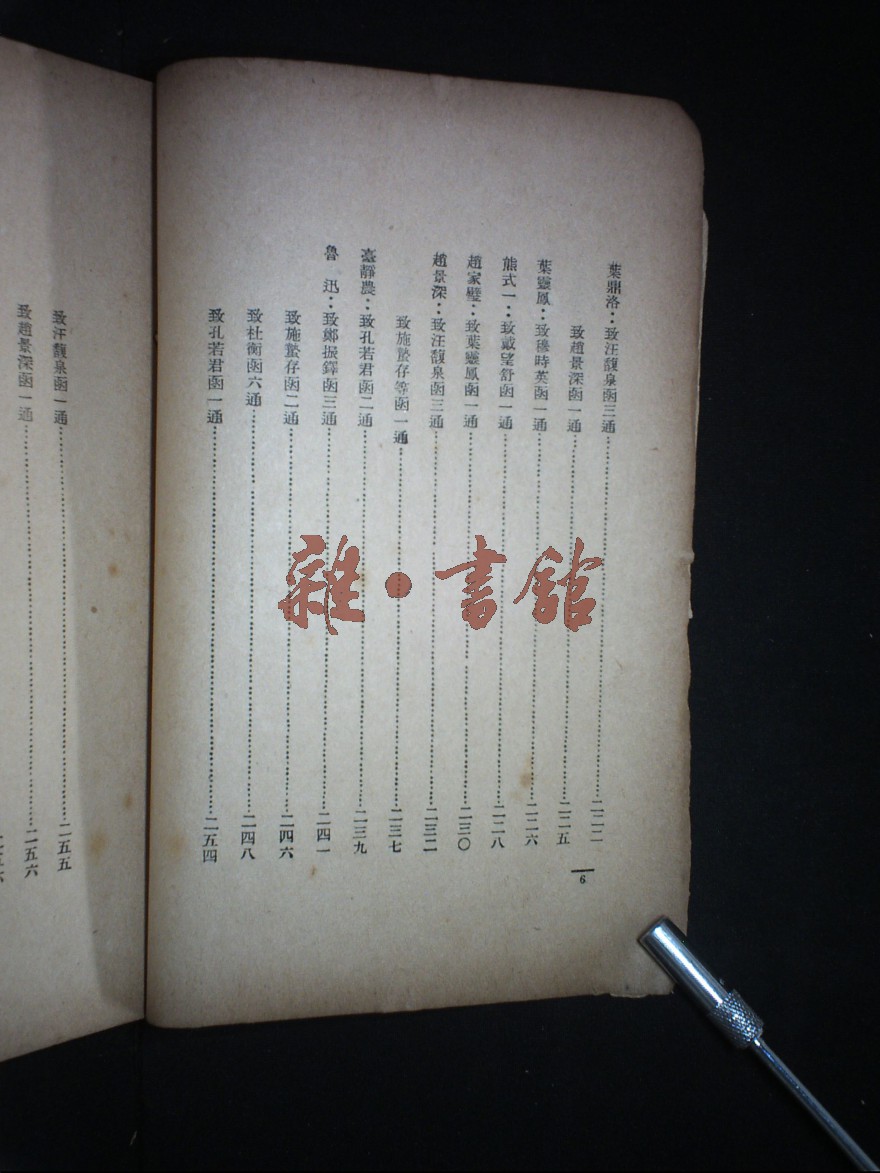 葉鼎洛：致汪馥泉函三通……二二二
致趙景深函一通……二二五
葉靈鳳：致穆時英函一通……二二六
熊式一：致戴望舒函一通……二二八
趙家璧：致葉靈鳳函一通……二三〇
趙景深：致汪馥泉函三通……二三二
致施蟄存等函一通……二三七
臺靜農：致孔若君函二通……二三九
魯　迅：致鄭振鐸函三通……二四一
致施蟄存函二通……二四六
致杜衡函六通……二四八
致孔若君函一通……二五四
6
致汪馥泉函一通……二五五
致趙景深函一通……二五六
雜·書館